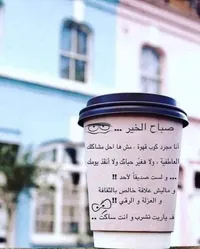 صباح الخير ...
أنا مجرد كوب قهوة ، مش ها احل مشاكلك
العاطفية ، ولا هغير حياتك ولا أنقذ يومك
... و لست صديقاً لأحد !!
و ماليش علاقة خالص بالثقافة
و العزلة و الرقي !!
ف ياريت تشرب و انت ساكت ..